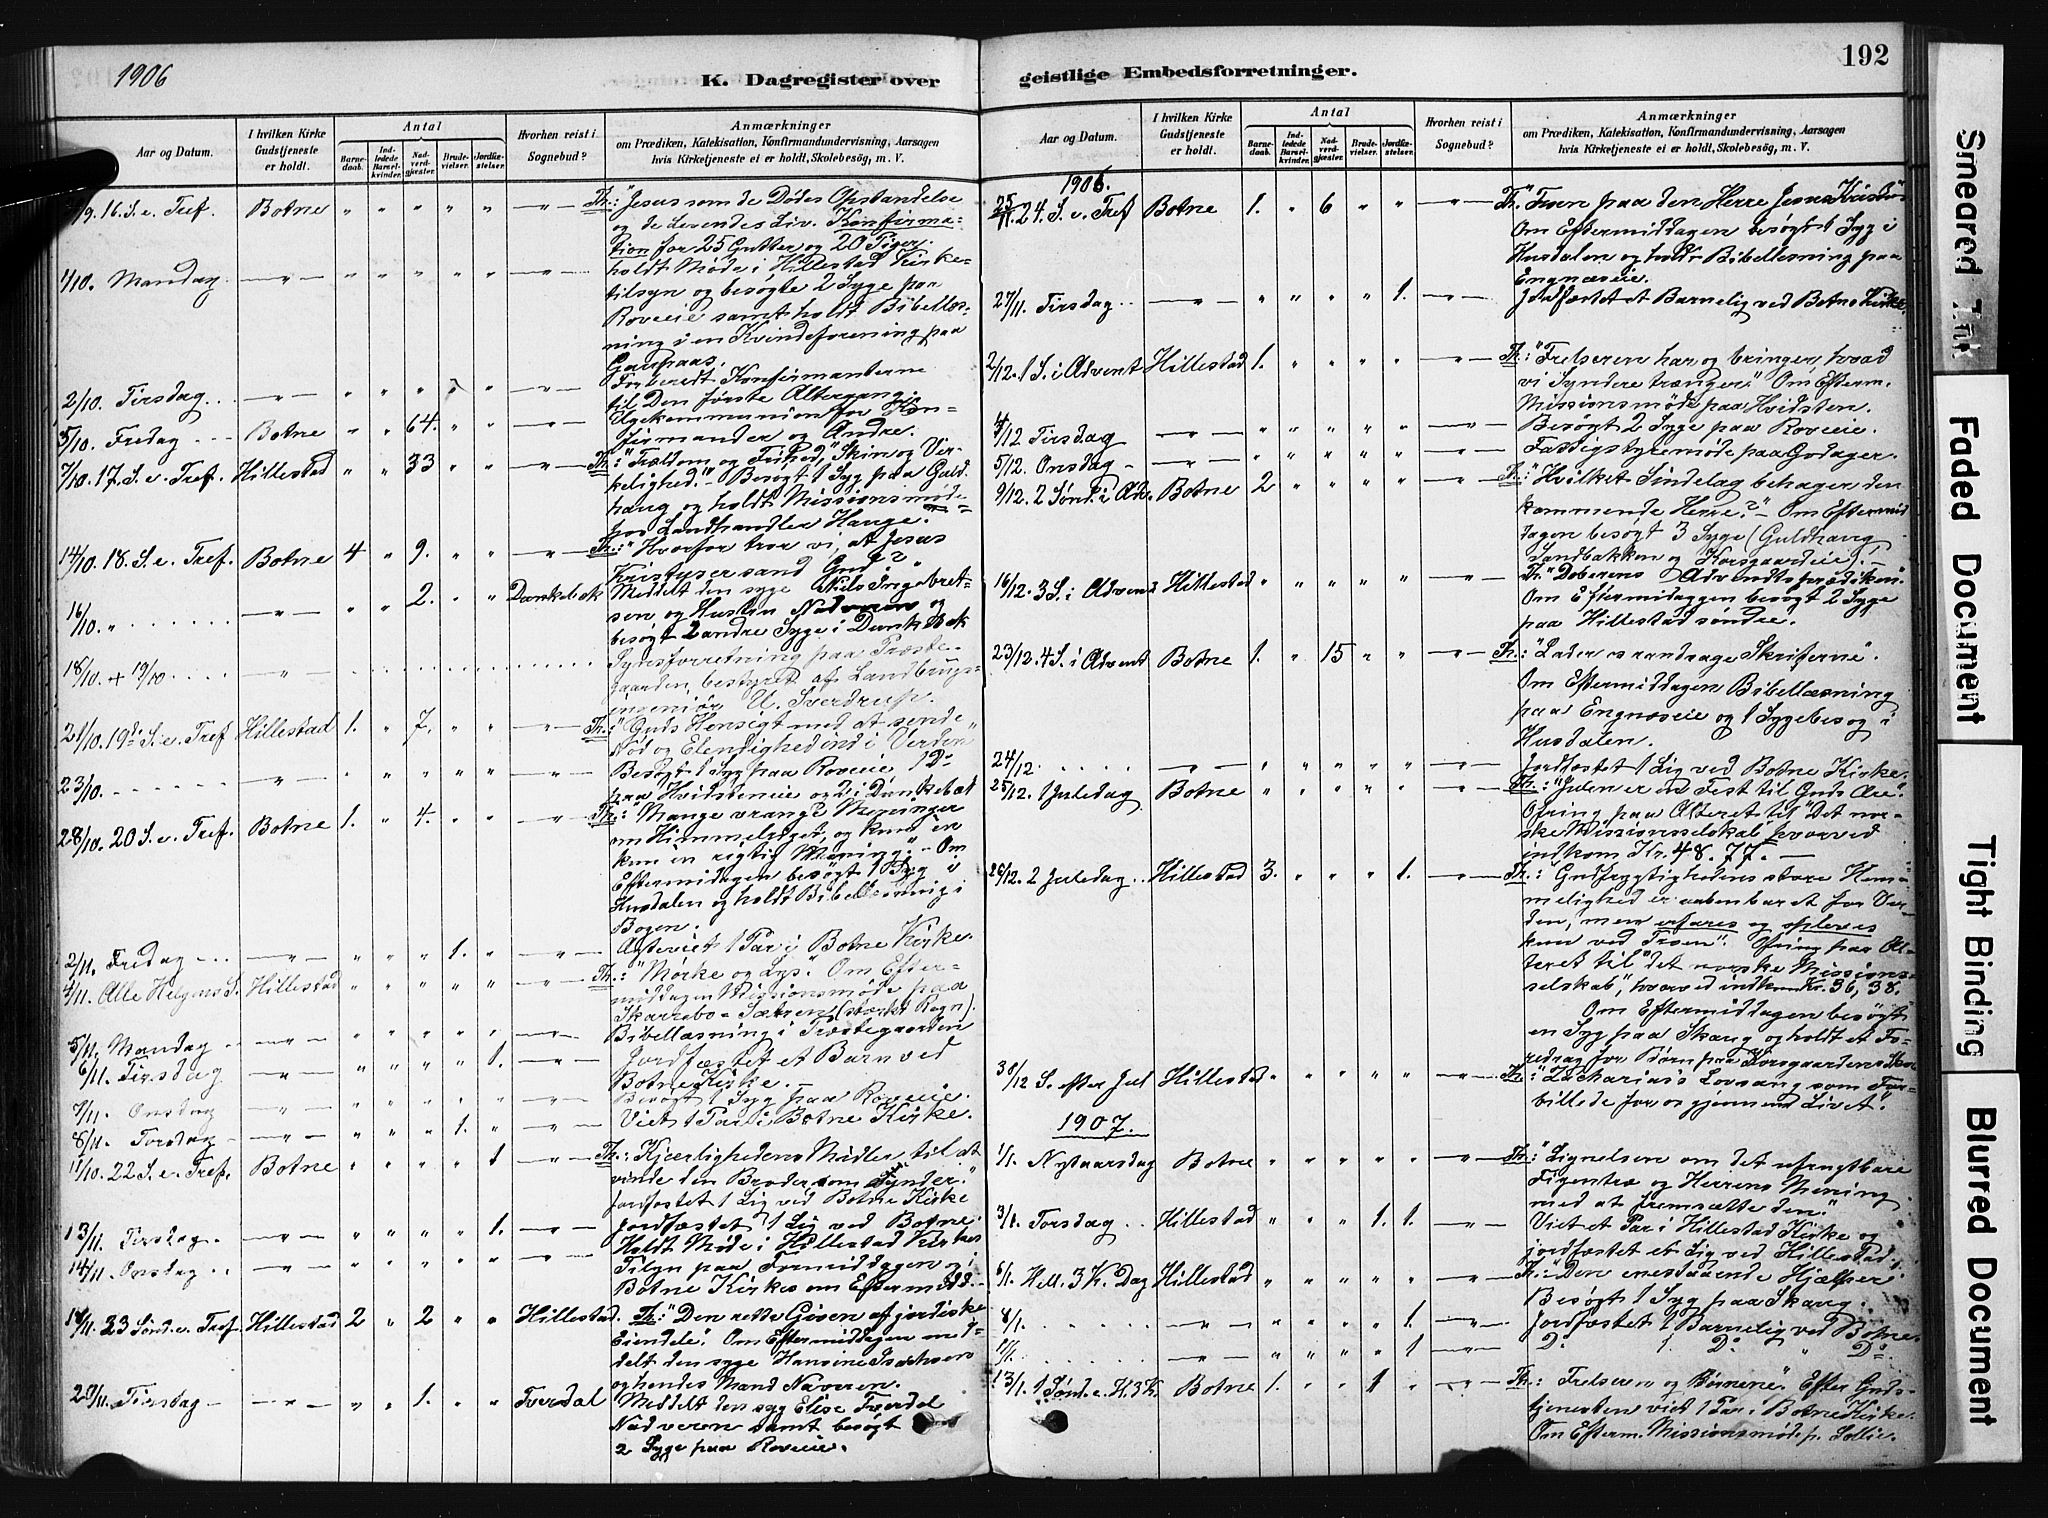 1906
K. Dagregister over
Aar og Datum.
I hvilken Kirke Gudstjeneste er holdt.
Antal
Barnedaab.
Indledede Barselkvinder.
Nadverdgjester.
Brudevielser.
Jordfæstelser.
Hvorhen reist i Sognebud?
Anmærkninger
om Prædiken, Katekisation, Konfirmandundervisning, Aarsagen
hvis Kirketjeneste ei er holdt, Skolebesög, m. V.
/9. 16. S. e. Tref. Botne " " " " " — " — Th.: "Jesus som de Dødes Opstandelse
og de Levendes Liv. Konfirma=
tion for 25 Gutter og 20 Piger.
1/10. Mandag — " — " " " " " — " — holdt Møde i Hillestad Kirke=
tilsyn og besøgte 2 Syge paa
Roveie samt holdt Bibellæs=
ning i en Kvindeforening paa
2/10. Tirsdag — " — " " " " " — " — Forberedt Konfirmanterne
til Den første Altergang.
5/10. Fredag Botne " " 64. " " — " — Ugekommunion for Kon=
firmander og Andre.
7/10. 17. S. e. Tref. Hillestad " " 33 " " — " — Th.: "Trældom og Frihed, Skin og Vir=
kelighed." - Besøgt 1 Syg paa Guld
haug og holdt Missionsmøde
hos Landhandler Hauge.
14/10. 18. S. e. Tref. Botne 4 " 9. " " — " — Th.: "Hvorfor tror vi, at Jesus
Kristus er sand Gud?"
16/10. " — " — " " 2. " " Dunkebæk Meddelt den syge Nils Ingebret=
sen og Hustru Nadveren og
besøgt 2 andre Syge i Dunkebæk
18/10. + 19/10 — " — Synsforretning paa Præste=
gaarden, bestyret af Landbrugs=
ingeniør U. Sverdrup.
21/10. 19de S. e. Tref Hillestad 1. " 7. " " — " — Th.: "Guds Hensigt med at sende
Nød og Elendighed ind i Verden"
23/10. — " — " " " " " — " — Besøgt 1 Syg paa Roveie 1 Do
paa Hvidsteneie og 2 i Dunkebæk
28/10. 20 S. e. Tref. Botne 1. " 4. " " — " — Th.: "Mange vrange Meninger
om Himmelriget, og kun en
kun en rigtig Mening." - Om
Eftermidagen besøgt 1 Syg i
Husdalen og holdt Bibellæsning i
Bogen.
2/11. Fredag — " — " " " 1. " — " — Ægteviet 1 Par i Botne Kirke.
4/11. Alle Helgens S. Hillestad " " " " " — " — Th.: "Mørke og Lys". Om Efter=
middagen Missionsmøde paa
Skarrebo-Sætren (stærkt Regn).
5/11. Mandag — " — " " " " " — " — Bibellæsning i Præstegaarden
6/11. Tirsdag — " — " " " " 1. — " — Jordfæstet et Barn ved
Botne Kirke. —
7/11. Onsdag — " — " " " " " — " — Besøgt 1 Syg paa Roveie.
8/11. Torsdag — " — " " " 1. " — " — Viet 1 Par i Botne Kirke.
11/10. 22 S. e. Tref. Botne " " " " 1 — " — Th.: "Kjærlighedens Midler til at
vinde den Broder som Synder."
Jordfæstet 1 Lig ved Botne Kirke
13/11. Tirsdag — " — " " " " 1. — " — Jordfæstet 1 Lig ved Botne.
14/11. Onsdag — " — " " " " " — " — Holdt Møde i Hillestad Kirkes
Tilsyn paa Formiddagen og i
Botne Kirkes om Eftermidd.
18/11. 23 Sønd. e. Tref. Hillestad 2 " 2 " " Hillestad. Th.: "Den rette Given af jordiske
Eiendele". Om Eftermiddagen med=
delt den syge Hansine Isachsen
og hendes Mand Naveren.
20/11. Tirsdag — " — " " 1. " " Tverdal Meddelt den syg Elise Tverdal
Nadveren samt besøgt
2 Syge paa Roveie.
192
geistlige Embedsforretninger.
Aar og Datum.
I hvilken Kirke Gudstjeneste er holdt.
Antal
Barnedaab.
Indledede Barselkvinder.
Nadverdgjester.
Brudevielser.
Jordfæstelser.
Hvorhen reist i Sognebud?
Anmærkninger
om Prædiken, Katekisation, Konfirmandundervisning, Aarsagen
hvis Kirketjeneste ei er holdt, Skolebesög, m. V.
1906.
25/11. 24. S. e. Tref Botne 1. " 6 " " — " — Th. "Troen paa den Herre Jesus Kristus"
Om Eftermiddagen besøgt 1 Syg i
Husdalen og holdt Bibellesning paa
Engnæseie.
27/11. Tirsdag — " — " " " " 1. — " — Jordfæstet et Barnelig ved Botne Kirke.
2/12. 1 S. i Advent Hillestad 1. " " " " — " — Th.: "Frelseren har og bringer, hvad
vi Syndere trænger." Om Efterm.
Missionsmøde paa Hvidsten.
4/12 Tirsdag — " — " " " " " — " — Besøgt 2 Syge paa Roveie.
5/12. Onsdag — " — " " " " " — " — Fattigstyremøde paa Godager.
9/12. 2 Sønd. i Adv. Botne 2 " " " " — " — Th.: "Hvilket Sindelag behager den
kommende Herre?" - Om Eftermid
dagen besøgt 3 Syge (Guldhaug
Sandbakken og Korsgaardeie)! -
16/12. 3 S. i Advent Hillestad " " " " " — " — Th. "Døberens Adventsprædiken."
Om Eftermidaggen besøgt 2 Syge
paa Hillestad søndre.
23/12. 4 S. i Advent Botne 1. " 15 " " — " — Th.: "Lader os randsage Skrifterne".
Om Eftermiddagen Bibellæsning
paa Engnæseie og 1 Sygebesøg i
Husdalen.
24/12. — " — " " " " " — " — Jordfæstet 1 Lig ved Botne Kirke.
25/12. 1 Juledag Botne " " " " " — " — Th.: "Julen er en Fest til Guds Ære".
Ofring paa Alteret til "Det nor=
ske Missionsselskab", hvorved
indkom Kr. 48. 77. —
26/12. 2 Juledag Hillestad 3. " " " 1. — " — Th.: "Gudfrygtighedens store Hem=
melighed er aabenbaret for Ver=
den, men erfares og opleves
kun ved Troen". Ofring paa Al=
teret til "det norske Missions=
selskab", hvorved indkom Kr. 36, 38.
Om Eftermiddagen besøgt
en Syg paa Skaug og holdt et Fo=
redrag for Børn paa Korsgaarden Skole
30/12 S. efter Jul Hillestad " " " " " — " — Th.: "Zacharias's Lovsang som For=
billede for os gjennem Livet".
1907.
1/1. Nytaarsdag Botne " " " " " — " — Th.: "Lignelsen om det ufrugtbare
Figentræ og Herrens Mening
med at fremsætte den."
3/1. Torsdag Hillestad " " " 1. 1. — " — Viet et Par i Hillestad Kirke og
jordfæstet et Lig ved Hillestad.
6/1. Hell. 3 K. Dag Hillestad " " " " " — " — Th.: "Den enestaaende Hjælper".
Besøgt 1 Syg paa Skaug.
8/1. — " — " " " " 1. — " — Jordfæstet 1 Barnelig ved Botne.
/1. — " — " " " " 1 — " — Do 1. Do " Do
13/1. 1 Sønd. e. H. 3 K. Botne 1. " " 1 " — " — Th.: "Frelseren og Børnene". Efter Guds=
tjenesten viet 1 Par i Botne Kirke.
Om Efterm. Missionsmøde p. Sollie.
Smeared Ink
Faded Document
Tight Binding
Blurred Document